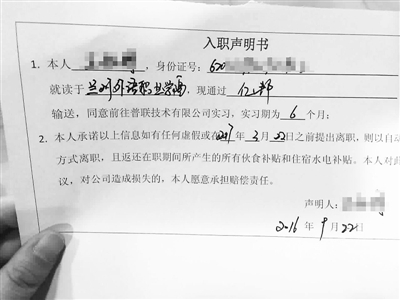 入职声明书
1. 本人 ，身份证号：620
就读于兰州外语职业学院，现通过仁邦
输送，同意前往普联技术有限公司实习，实习期为6个月；
2. 本人承诺以上信息如有任何虚假或在2017年3月22日之前提出离职，则以自动
方式离职，且返还在职期间所产生的所有伙食补贴和住宿水电补贴。本人对此
议，对公司造成损失的，本人愿意承担赔偿责任。
声明人：
2016年9月22日